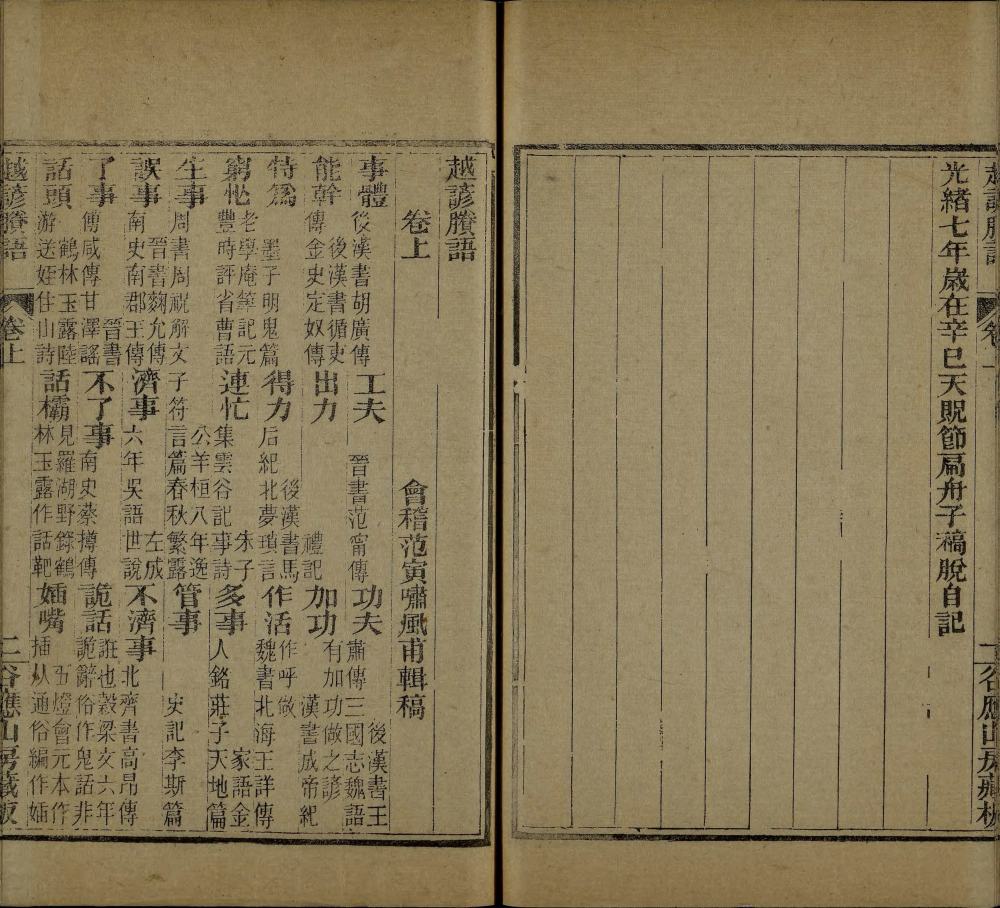 越諺賸語 卷上 一 谷應山房藏板
光緒七年歲在辛巳天貺節扁舟子稿脫自記
越諺賸語
卷上 會稽范寅嘯風甫輯稿
事體 後漢書胡廣傳 工夫 晉書范甯傳 功夫 後漢書王肅傳三國志魏語
能幹 後漢書循吏傳金史定奴傳 出力 禮記 加功 有加功做之諺漢書成帝紀
特爲 墨子明鬼篇 得力 後漢書馬后紀北夢瑣言 作活 作呼做魏書北海王詳傳
窮忙 老學庵筆記元豐時評省曹語 連忙 朱子集雲谷記事詩 多事 家語金人銘莊子天地篇
生事 公羊桓八年逸周書周祝解文子符言篇春秋繁露 管事 史記李斯篇
誤事 晉書麴允傳南史南郡王傳 濟事 左成六年吳語世說 不濟事 北齊書高昂傳
了事 晉書傅咸傳甘澤謠 不了事 南史蔡撙傳 詭話 誑也穀梁文六年詭辭俗作鬼話非
話頭 鶴林玉露陸游送姪住山詩 話欛 見羅湖野錄鶴林玉露作話靶 㛼嘴 五燈會元本作插从通俗編作㛼
越諺賸語 卷上 二 谷應山房藏板